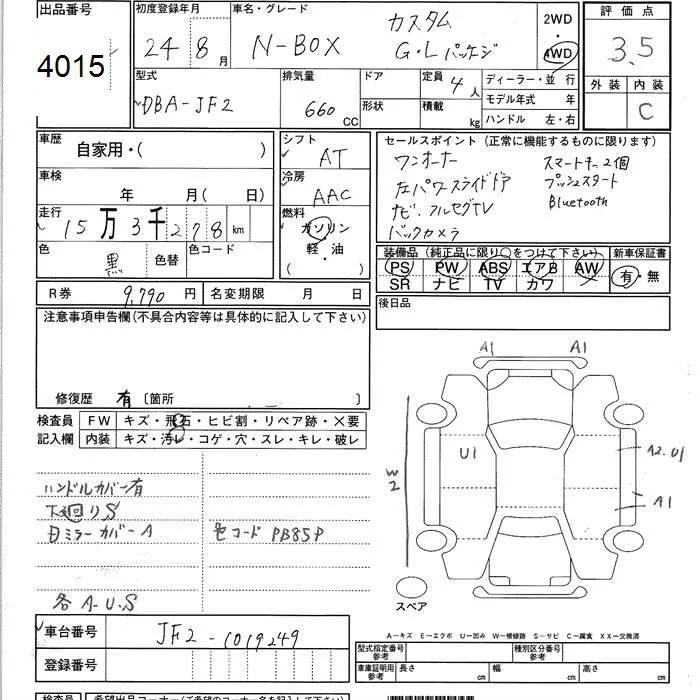 出品番号
4015
初度登録年月
24 8 月
車名・グレード
N-BOX
カスタム
G・Lパッケージ
2WD
・
4WD
評価点
3.5
外装 内装
C
型式
DBA-JF2
排気量
660 CC
ドア
形状
定員 4 人
積載 kg
ディーラー・並行
モデル年式 年
ハンドル 左・右
車歴
自家用・( )
車検
年 月( 日)
走行
15万3千278 km
色
黒
色替
色コード
シフト
AT
冷房
AAC
燃料
ガソリン
軽・油
( )
セールスポイント (正常に機能するものに限ります)
ワンオーナー
左パワースライドドア
ナビ、フルセグTV
バックカメラ
スマートキー2個
プッシュスタート
Bluetooth
装備品 (純正品に限り○をつけて下さい)
PS PW ABS エアB AW
SR ナビ TV カワ
新車保証書
有・無
R券 9,790 円
名変期限 月 日
後日品
注意事項申告欄(不具合内容等は具体的に記入して下さい)
修復歴 有 〔箇所 〕
検査員
記入欄
FW キズ・飛石・ヒビ割・リペア跡・×要
内装 キズ・汚レ・コゲ・穴・スレ・キレ・破レ
ハンドルカバー有
下廻りS
日ミラーカバーA
色コード PB85P
各A.U.S
A1
A1
U1
A2.U1
A1
W2
スペア
A－キズ E－エクボ U－凹み W－補修跡 S－サビ C－腐食 XX－交換済
車台番号
JF2-1019249
登録番号
型式指定番号
参考
種別区分番号
参考
車庫証明用
参考
長さ cm 幅 cm 高さ cm
検査員